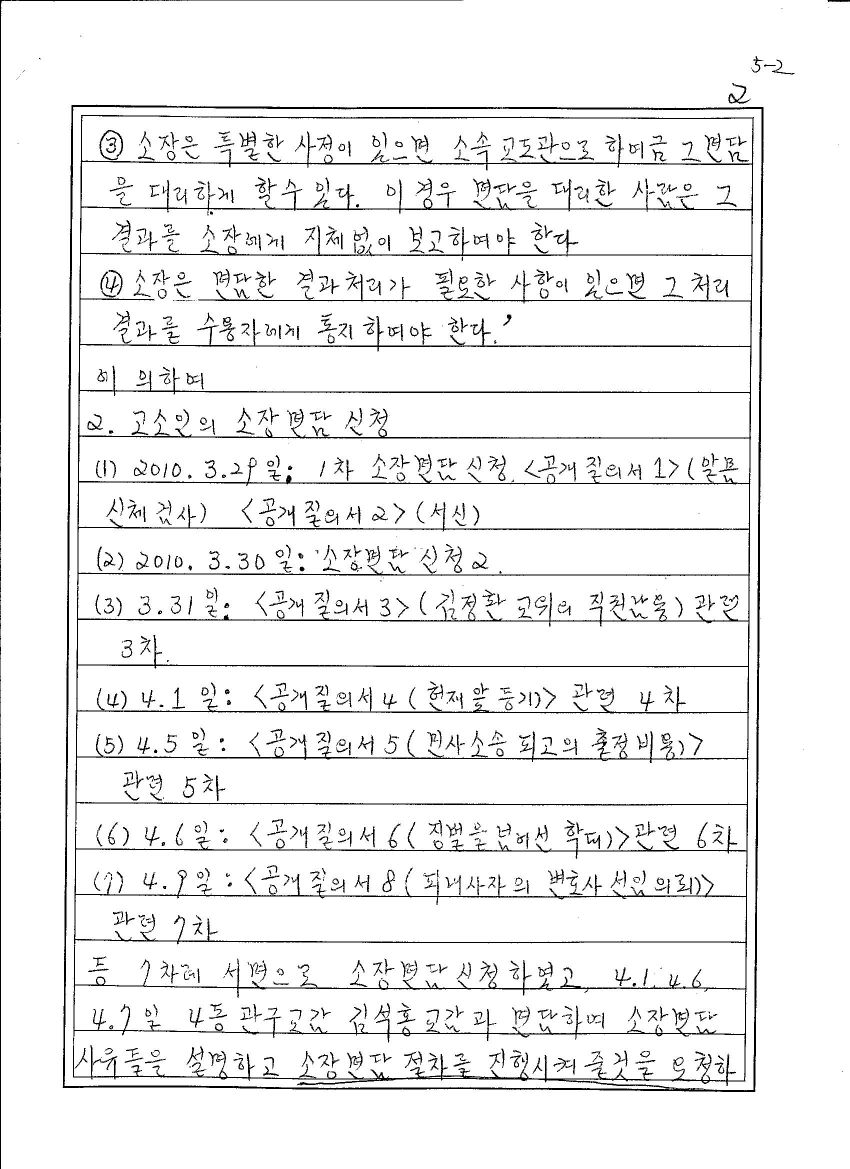 5-2
2
③ 소장은 특별한 사정이 있으면 소속 교도관으로 하여금 그 면담
을 대리하게 할 수 있다. 이 경우 면담을 대리한 사람은 그
결과를 소장에게 지체없이 보고하여야 한다
④ 소장은 면담한 결과 처리가 필요한 사항이 있으면 그 처리
결과를 수용자에게 통지하여야 한다.'
에 의하여
2. 고소인의 소장면담 신청
(1) 2010. 3.29일: 1차 소장면담 신청. <공개질의서 1> (알몸
신체검사) <공개질의서 2> (서신)
(2) 2010. 3.30일: 소장면담 신청 2.
(3) 3.31일: <공개질의서 3> (김정환 교위의 직권남용) 관련
3차.
(4) 4.1일: <공개질의서 4 (현재 알 등기)> 관련 4차
(5) 4.5일: <공개질의서 5 (민사소송 피고의 출정비용)>
관련 5차
(6) 4.6일: <공개질의서 6 (징벌을 넘어선 학대)> 관련 6차
(7) 4.9일: <공개질의서 8 (피내사자의 변호사 선임 의뢰)>
관련 7차
등 7차례 서면으로 소장면담 신청하였고, 4.1. 4.6.
4.7일 4동 관구교감 김석홍 교감과 면담하여 소장면담
사유들을 설명하고 소장면담 절차를 진행시켜 줄것을 요청하